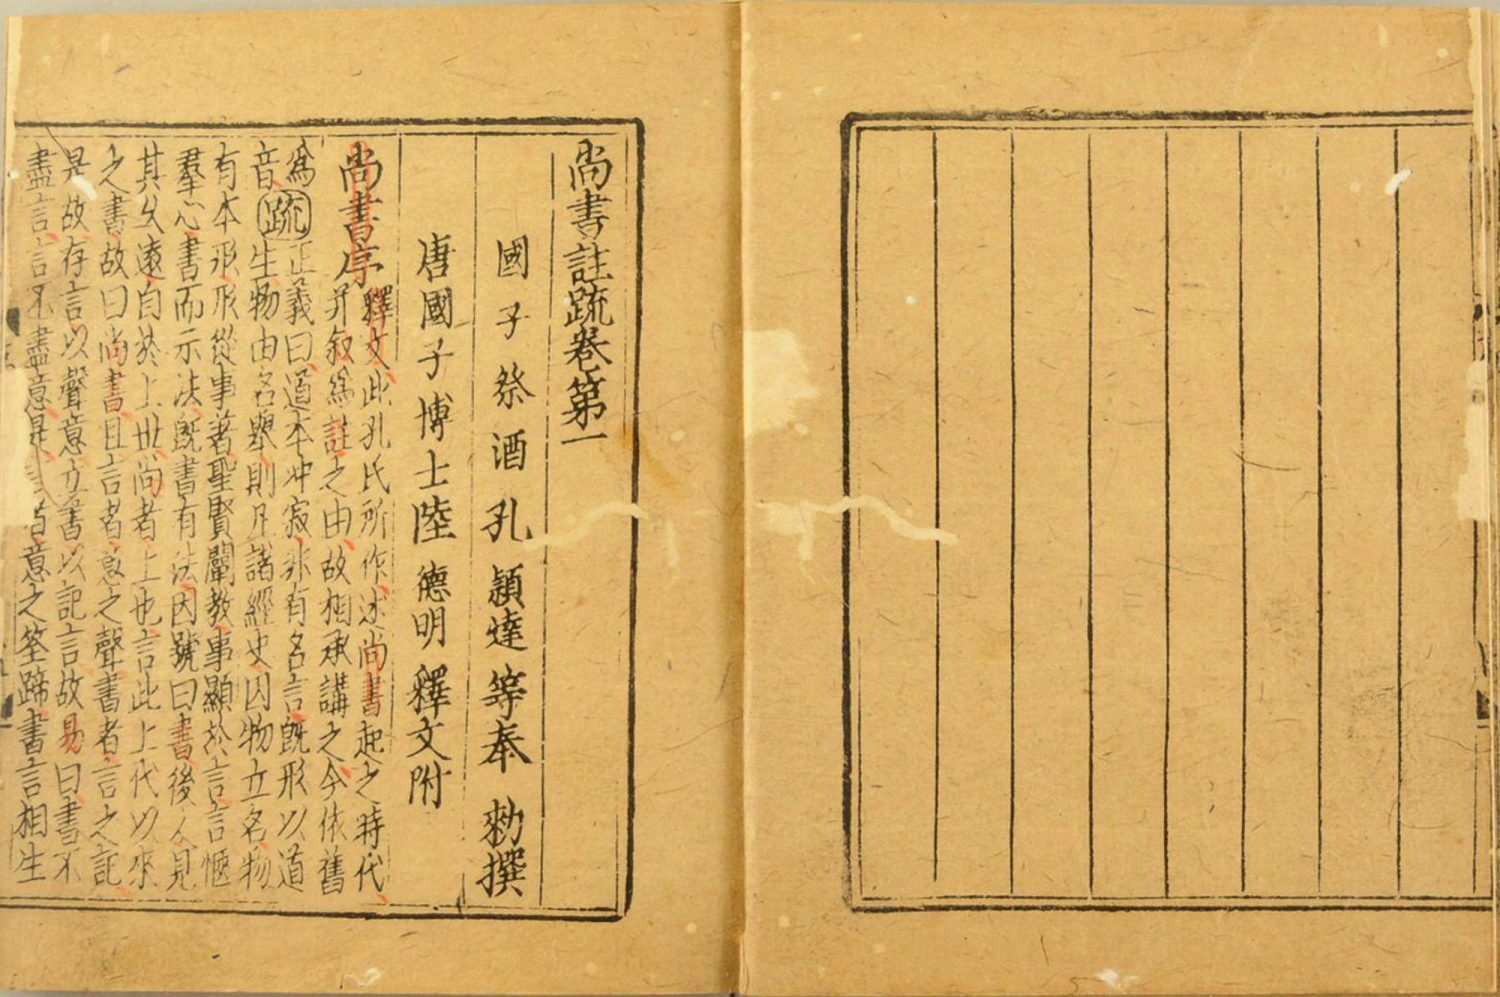 尚書註疏卷第一
國子祭酒孔穎達等奉勑撰
唐國子博士陸德明釋文附
尚書序
釋文此孔氏所作述尚書起之時代
并叙爲註之由故相承講之今依舊
爲
音
疏
正義曰道本冲寂非有名言旣形以道
生物由名舉則凡諸經史因物立名物
有本形形從事著聖賢闡教事顯於言言愜
羣心書而示法旣書有法因號曰書後人見
其久遠自於上世尚者上也言此上代以來
之書故曰尚書且言者意之聲書者言之記
是故存言以聲意立書以記言故易曰書不
盡言言不盡意是者意之筌蹄書言相生